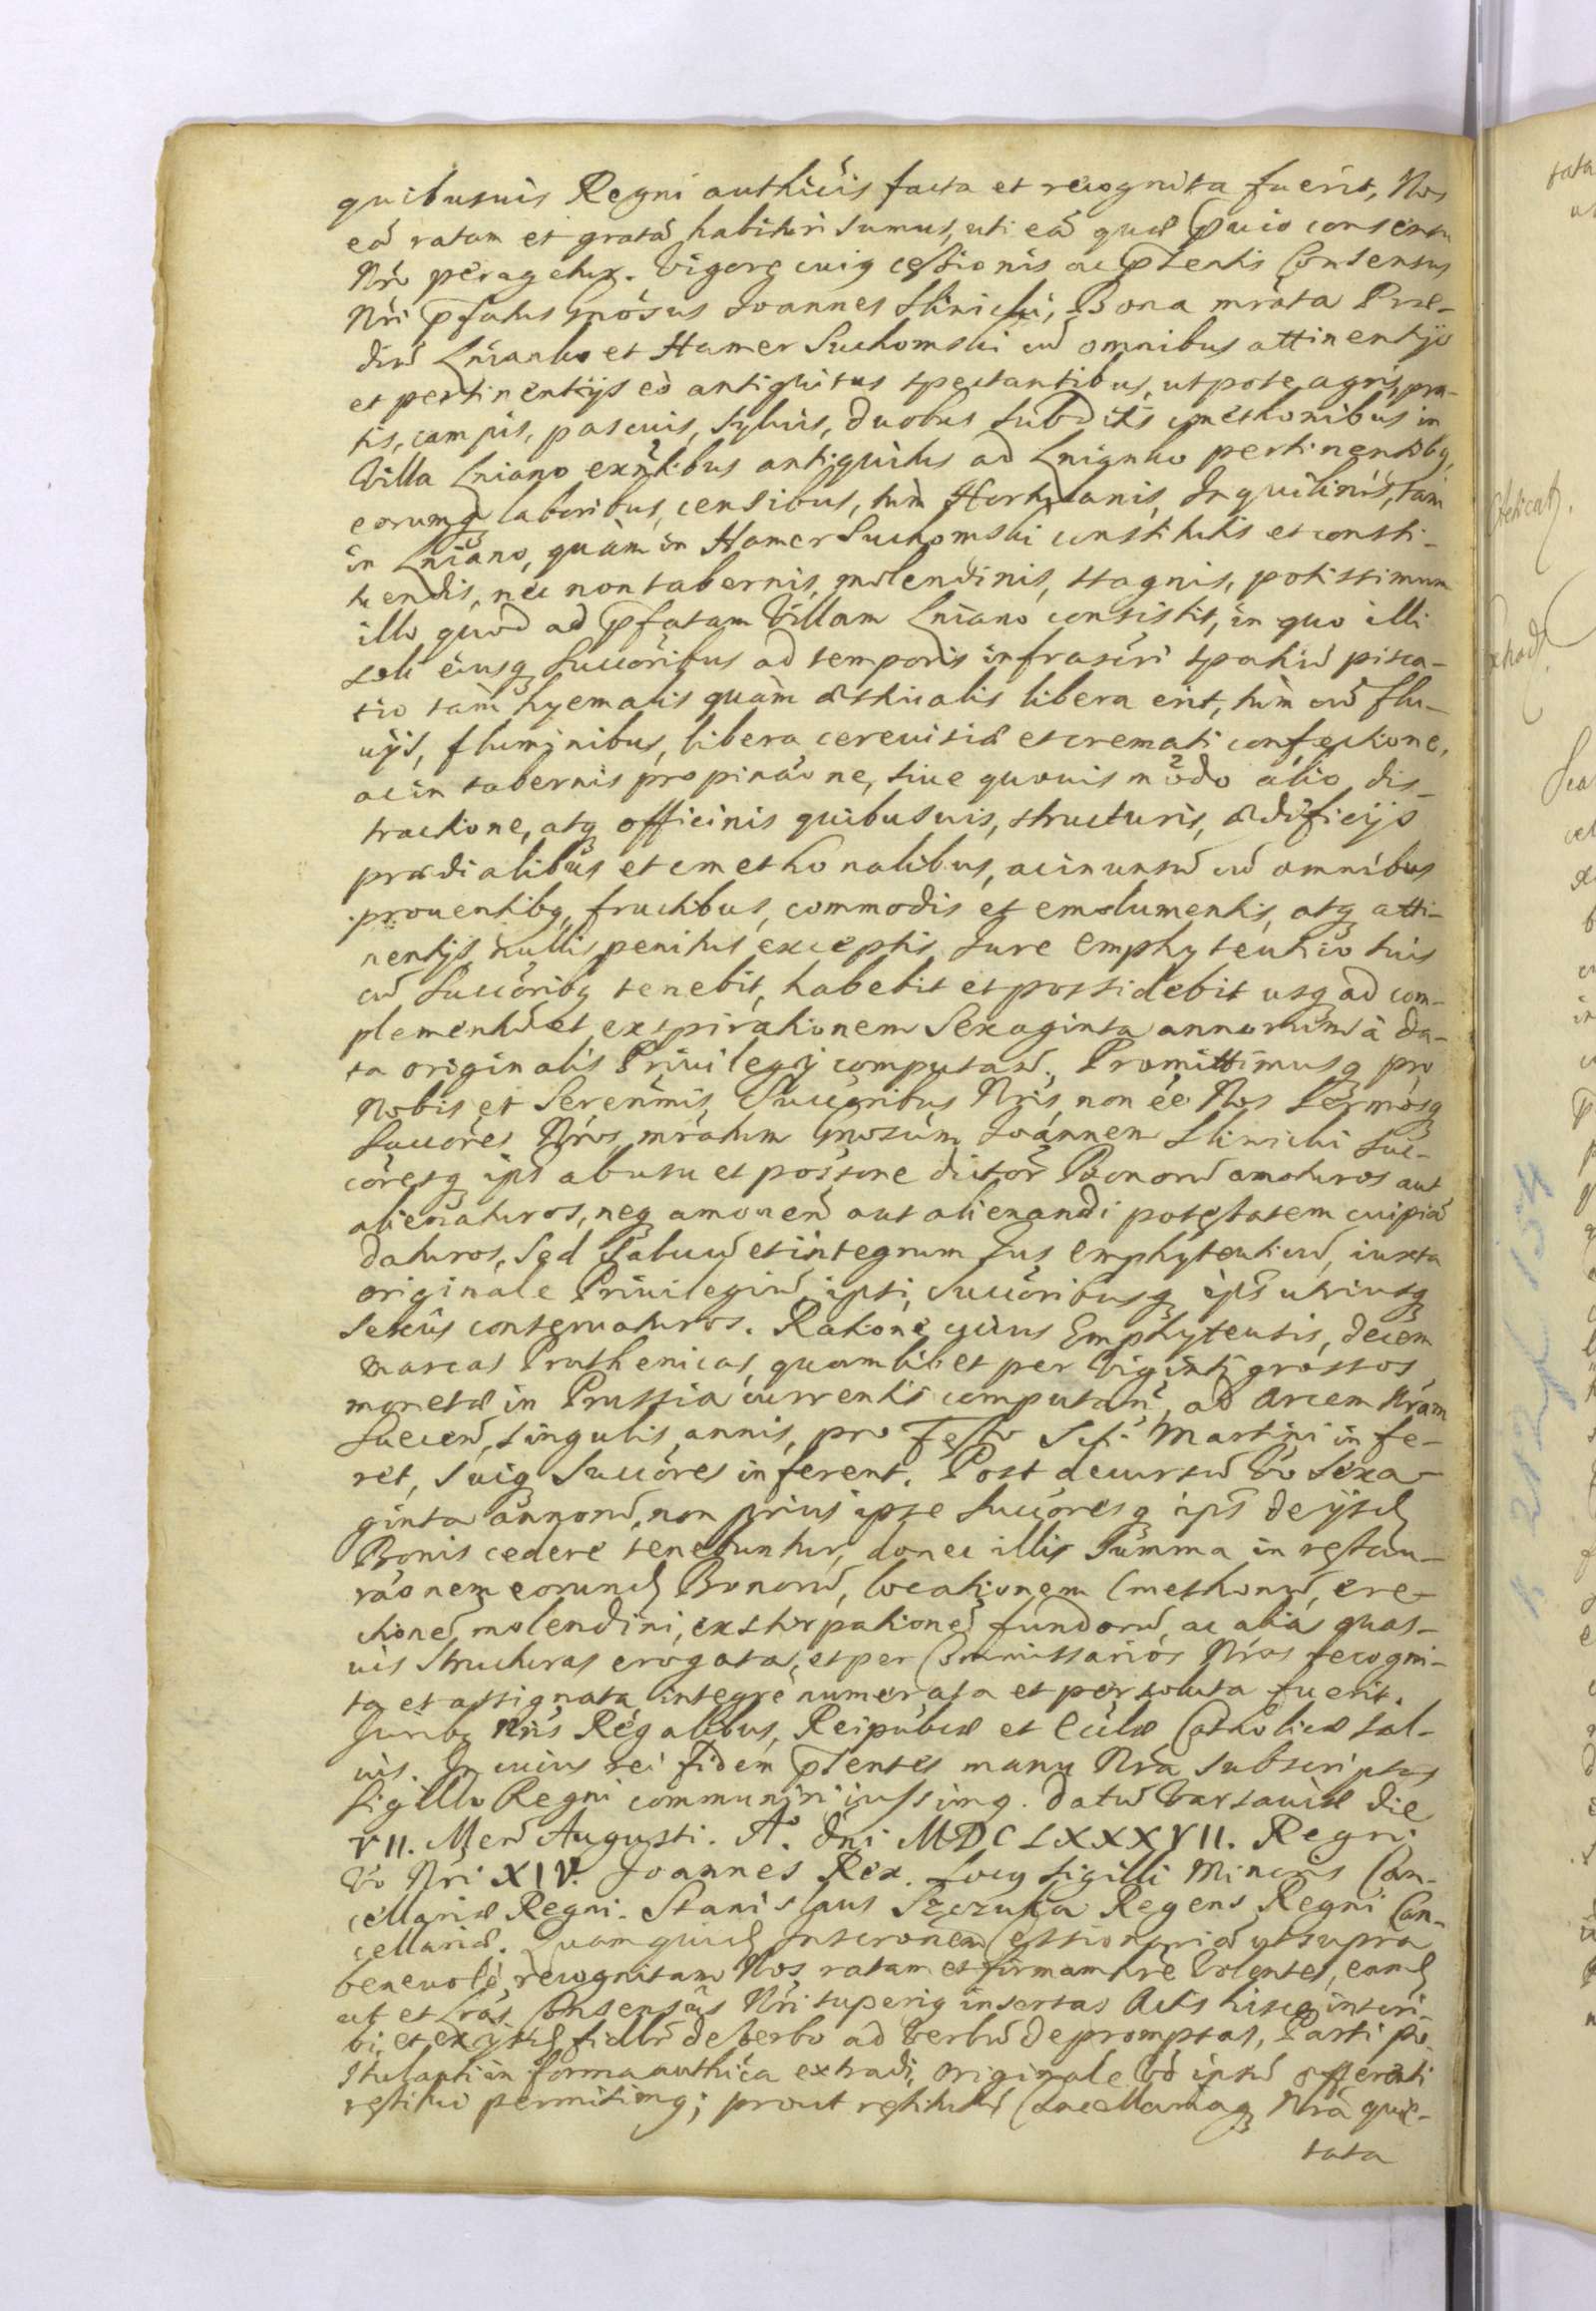 quibusuis Regni authicis facta et recognita fuerit, Nos
eã ratam et gratã habituri sumus, uti eã quæ p̃uio consensu
Nr̃o peragetur. Vigore cuiq cessionis ac p̃sentis Consensus
Nr̃i p̃fatus Gnõsus Joannes Sliwicki, Bona mrãta Præ-
diũ Lnianko et Hamer Suchomski cũ omnibus attinentijs
et pertinentijs eò antiquitus spectantibus, utpote agris, pra-
tis, campis, pascuis, syluis, duobus subditis cmethonibus in
Villa Lniano exñtibus antiquitus ad Lnianko pertinentibq,
eorumq laboribus, censibus, tùm Hortulanis, Inquilinis, tàm
in Lniano, quàm in Hamer Suchomski constitutis et consti-
tuendis, nec non tabernis, molendinis, stagnis, potissimum
illo quod ad p̃fatam Villam Lniano consistit, in quo illi
soli eiusq succõribus ad temporis infrascri spatiũ pisca-
tio tàm hyemalis quàm æstiualis libera erit, tùm cũ flu-
uijs, fluminibus, libera cereuisiæ et cremati confectione,
ac in tabernis propinãone, siue quouis modo alio dis-
tractione, atq officinis quibusuis, structuris, ædificijs
prædialibus et cmethonalibus, ac in unsũ cũ omnibus
prouentibq, fructibus, commodis et emolumentis, atq atti-
nentijs nullis penitus exceptis Jure emphyteutico suis
cũ Succõribq tenebit, habebit et possidebit usq ad com-
plementũ et expirationem Sexaginta annorum à da-
ta originalis Priuilegij computañ. Promittimusq pro
Nobis et Serenmis Succõribus Nris, non ẽe Nos Sermosq
Succõres Nr̃os mrãtum Gnosum Joannem Sliwicki Suc-
cõresq ips ab usu et possõne dictor Bonorũ amoturos aut
alienaturos, neq amouendi aut alienandi potestatem cuipiã
daturos, Sed Saluũ et integrum Jus emphyteuticũ, iuxta
originale Priuilegiũ, ipsi, Succõribusq ips utriusq
Sexûs conseruaturos. Ratione cuius Emphyteusis, decem
marcas Pruthenicas, quamlibet per Viginti grossos
monetæ in Prussia currentis computañ, ad Arcem Nram
Suecen, singulis annis, pro Festo Scti Martini infe-
ret, Suiq Succõres inferent. Post decursũ Vo Sexa-
ginta annorũ, non prius ipse Succõresq ips de ijsd
Bonis cedere tenebuntur, donec illis Summa in restau-
rãonem eorund Bonorũ, locationem Cmethonũ, ere-
ctionẽ molendini, exstirpationẽ fundorũ, ac alias quas-
uis Structuras erogata, et per Commissarios Nros recogni-
ta et assignata integre numerata et persoluta fuerit.
Juribq Nris Regalibus, Reipubcæ et Ecclæ Catholicæ sal-
uis. In cuius rei fidem p̃sentes manu Nra Subscriptas
Sigillo Regni communiri iussimq. Datũ Varsauiæ die
VII. Men Augusti. Ao. Dni MDCLXXXVII. Regni
Vo Nri XIV. Joannes Rex. Locq Sigilli Minoris Can-
cellariæ Regni. Stanislaus Szczuka Regens Regni Can-
cellariæ. Quamquid Inscronem Cessionariã ut supra
beneuolè recognitam Nos ratam et firmam hre Volentes, eamd
ut et Lras Consensûs Nri superiq insertas Actis hisce inscri-
bi, et ex ijsd fidlr de Verbo ad Verbũ depromptas, Parti po-
stulanti in forma authica extradi, originale Vo ipsũ offerenti
restitui permitimq; prout restitutũ Cancellariaq Nra quie-
tata